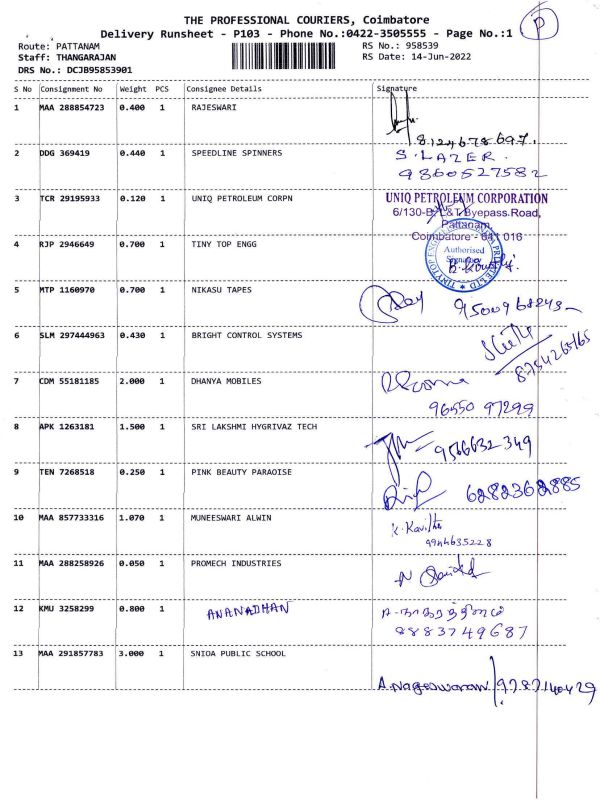 THE PROFESSIONAL COURIERS, Coimbatore
Delivery Runsheet - P103 - Phone No.:0422-3505555 - Page No.:1
P
Route: PATTANAM
RS No.: 958539
Staff: THANGARAJAN
RS Date: 14-Jun-2022
DRS No.: DCJB95853901
S No Consignment No Weight PCS Consignee Details Signature
1 MAA 288854723 0.400 1 RAJESWARI
8124678697.
2 DDG 369419 0.440 1 SPEEDLINE SPINNERS S.LAZER.
9860527582
3 TCR 29195933 0.120 1 UNIQ PETROLEUM CORPN UNIQ PETROLEUM CORPORATION
6/130-B, L&T Byepass Road,
Pattanam,
Coimbatore - 641 016
4 RJP 2946649 0.700 1 TINY TOP ENGG
Authorised
Signatory
5 MTP 1160970 0.700 1 NIKASU TAPES
6 SLM 297444963 0.430 1 BRIGHT CONTROL SYSTEMS
8754265165
7 CDM 55181185 2.000 1 DHANYA MOBILES
96550 97299
8 APK 1263181 1.500 1 SRI LAKSHMI HYGRIVAZ TECH
9566632349
9 TEN 7268518 0.250 1 PINK BEAUTY PARAOISE
6282362885
10 MAA 857733316 1.070 1 MUNEESWARI ALWIN K. Kavitha
9944635228
11 MAA 288258926 0.050 1 PROMECH INDUSTRIES
12 KMU 3258299 0.800 1 ANANADHAN
8883749687
13 MAA 291857783 3.000 1 SNIOA PUBLIC SCHOOL
A.Nageswaran 9787140429